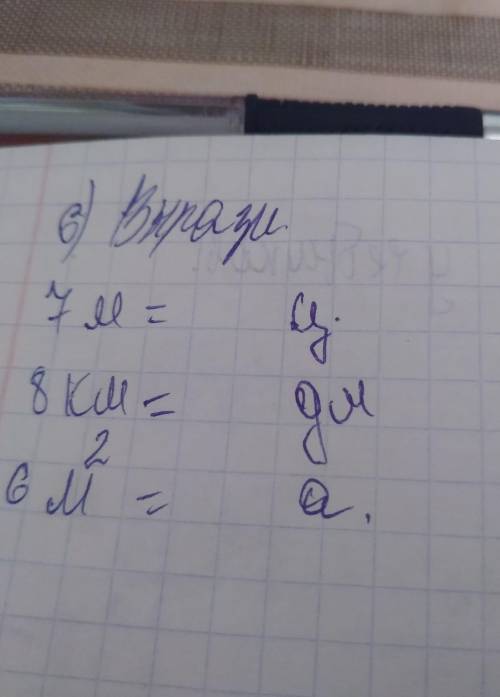 6) Вырази
7 м = ц.
8 км = дм
6 м² = а.